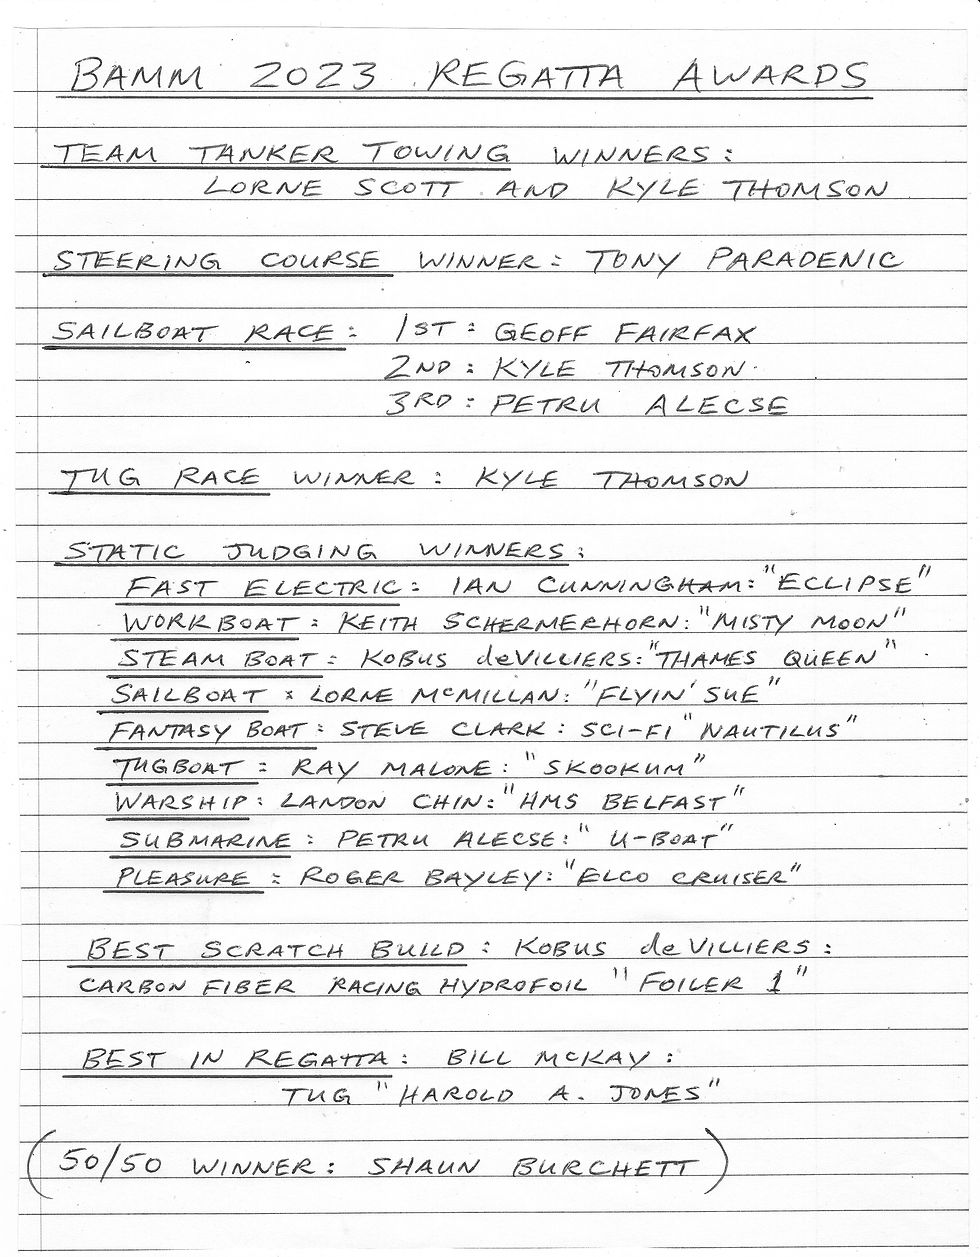 BAMM 2023 REGATTA AWARDS
TEAM TANKER TOWING WINNERS:
LORNE SCOTT AND KYLE THOMSON
STEERING COURSE WINNER: TONY PARADENIC
SAILBOAT RACE: 1ST: GEOFF FAIRFAX
2ND: KYLE THOMSON
3RD: PETRU ALECSE
TUG RACE WINNER: KYLE THOMSON
STATIC JUDGING WINNERS:
FAST ELECTRIC: IAN CUNNINGHAM: "ECLIPSE"
WORKBOAT: KEITH SCHERMERHORN: "MISTY MOON"
STEAM BOAT: KOBUS deVILLIERS: "THAMES QUEEN"
SAILBOAT: LORNE McMILLAN: "FLYIN' SUE"
FANTASY BOAT: STEVE CLARK: SCI-FI "NAUTILUS"
TUGBOAT: RAY MALONE: "SKOOKUM"
WARSHIP: LANDON CHIN: "HMS BELFAST"
SUBMARINE: PETRU ALECSE: "U-BOAT"
PLEASURE: ROGER BAYLEY: "ELCO CRUISER"
BEST SCRATCH BUILD: KOBUS deVILLIERS:
CARBON FIBER RACING HYDROFOIL "FOILER 1"
BEST IN REGATTA: BILL McKAY:
TUG "HAROLD A. JONES"
(50/50 WINNER: SHAUN BURCHETT)